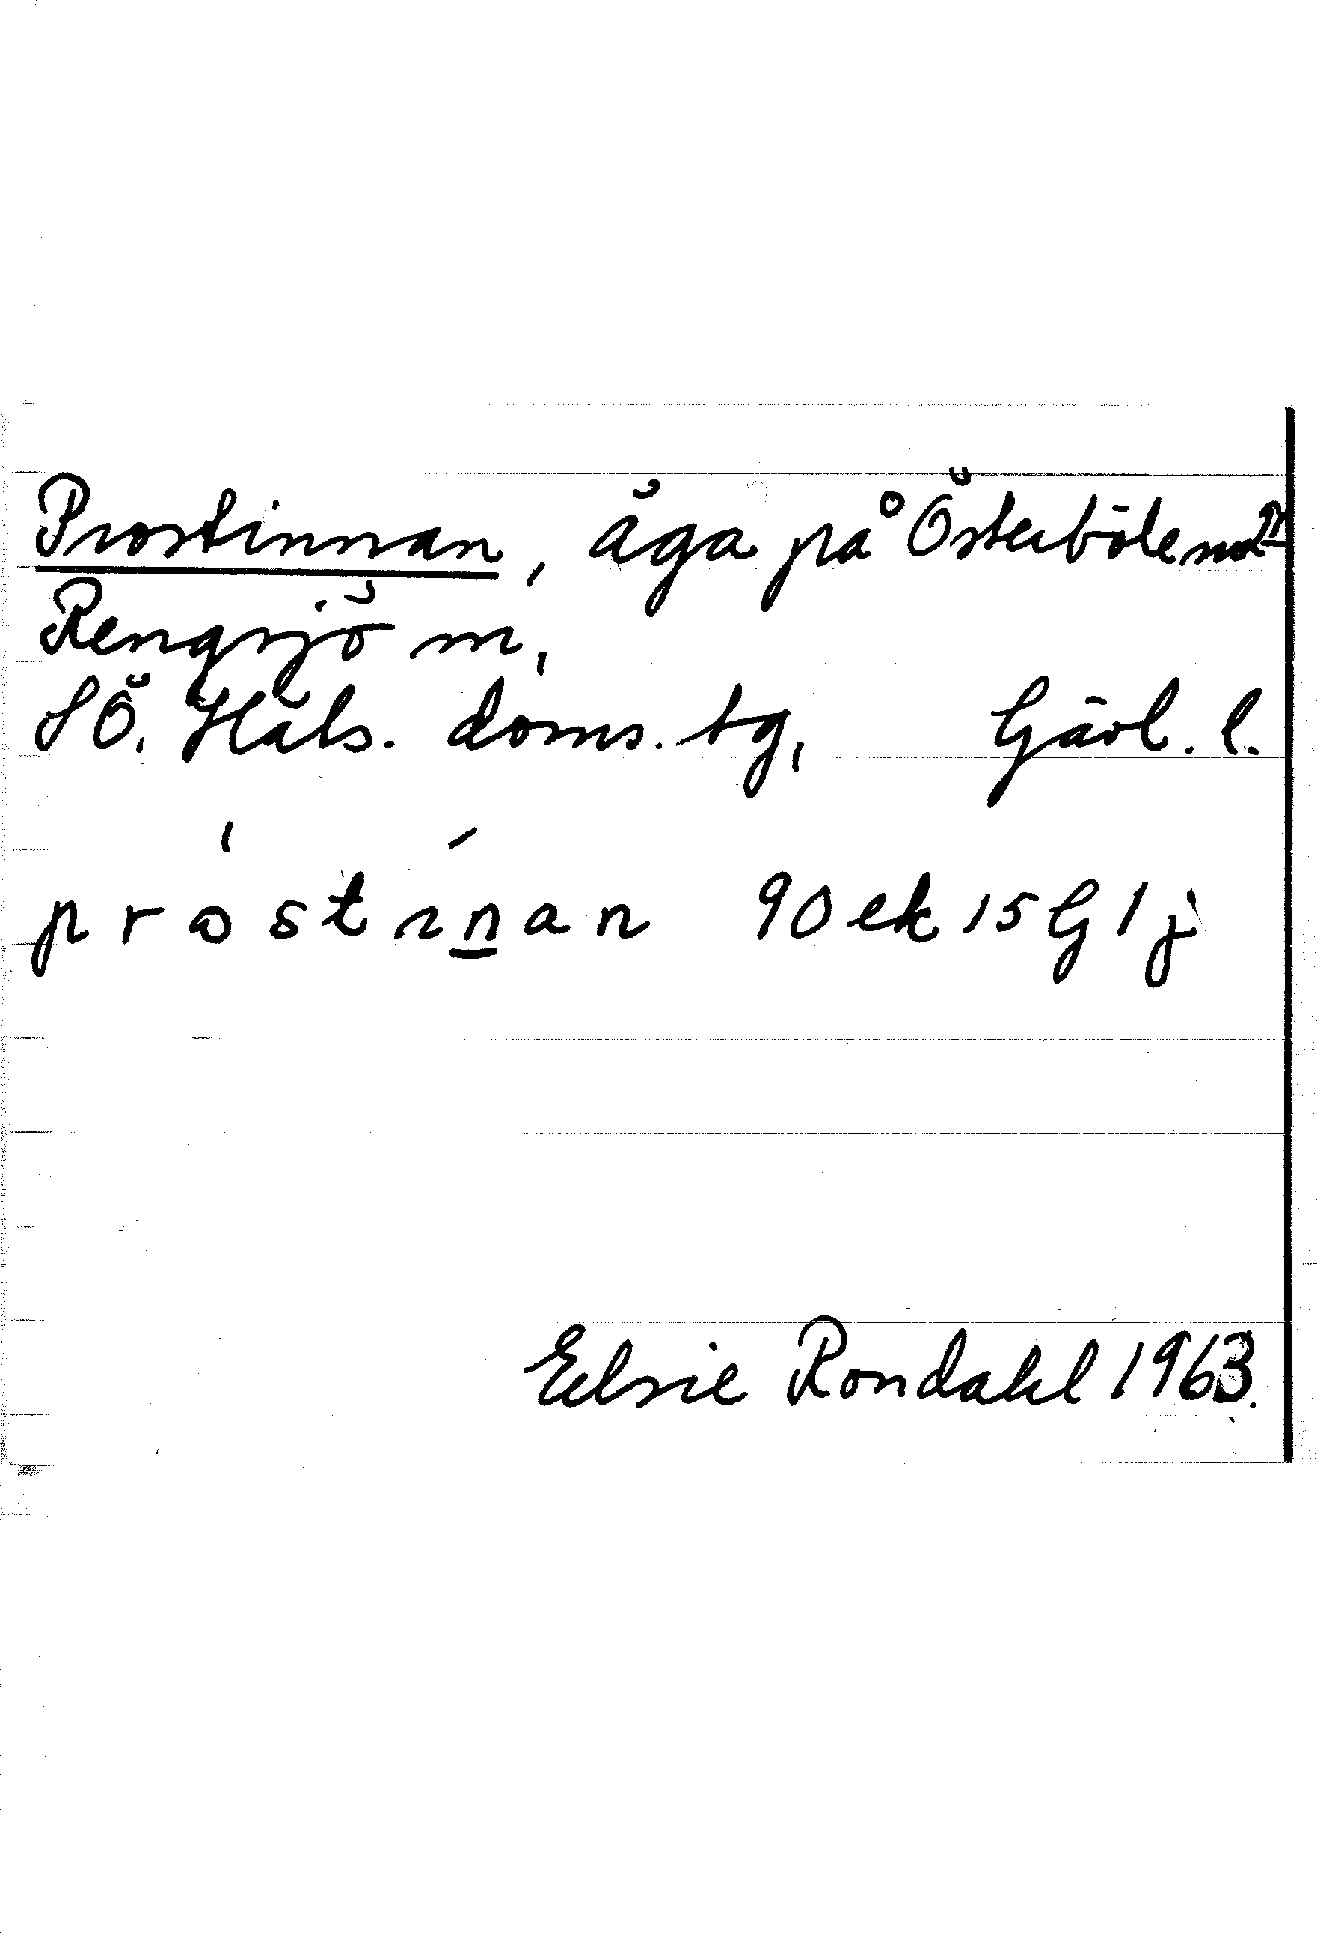 Prostinnan, äga på Österböle n:o 2
Rengsjö sn,
SÖ. Häls. doms. tg, Gävl. l.
próstínan 90 ek 15 G 1 j
Elsie Rondahl 1963.